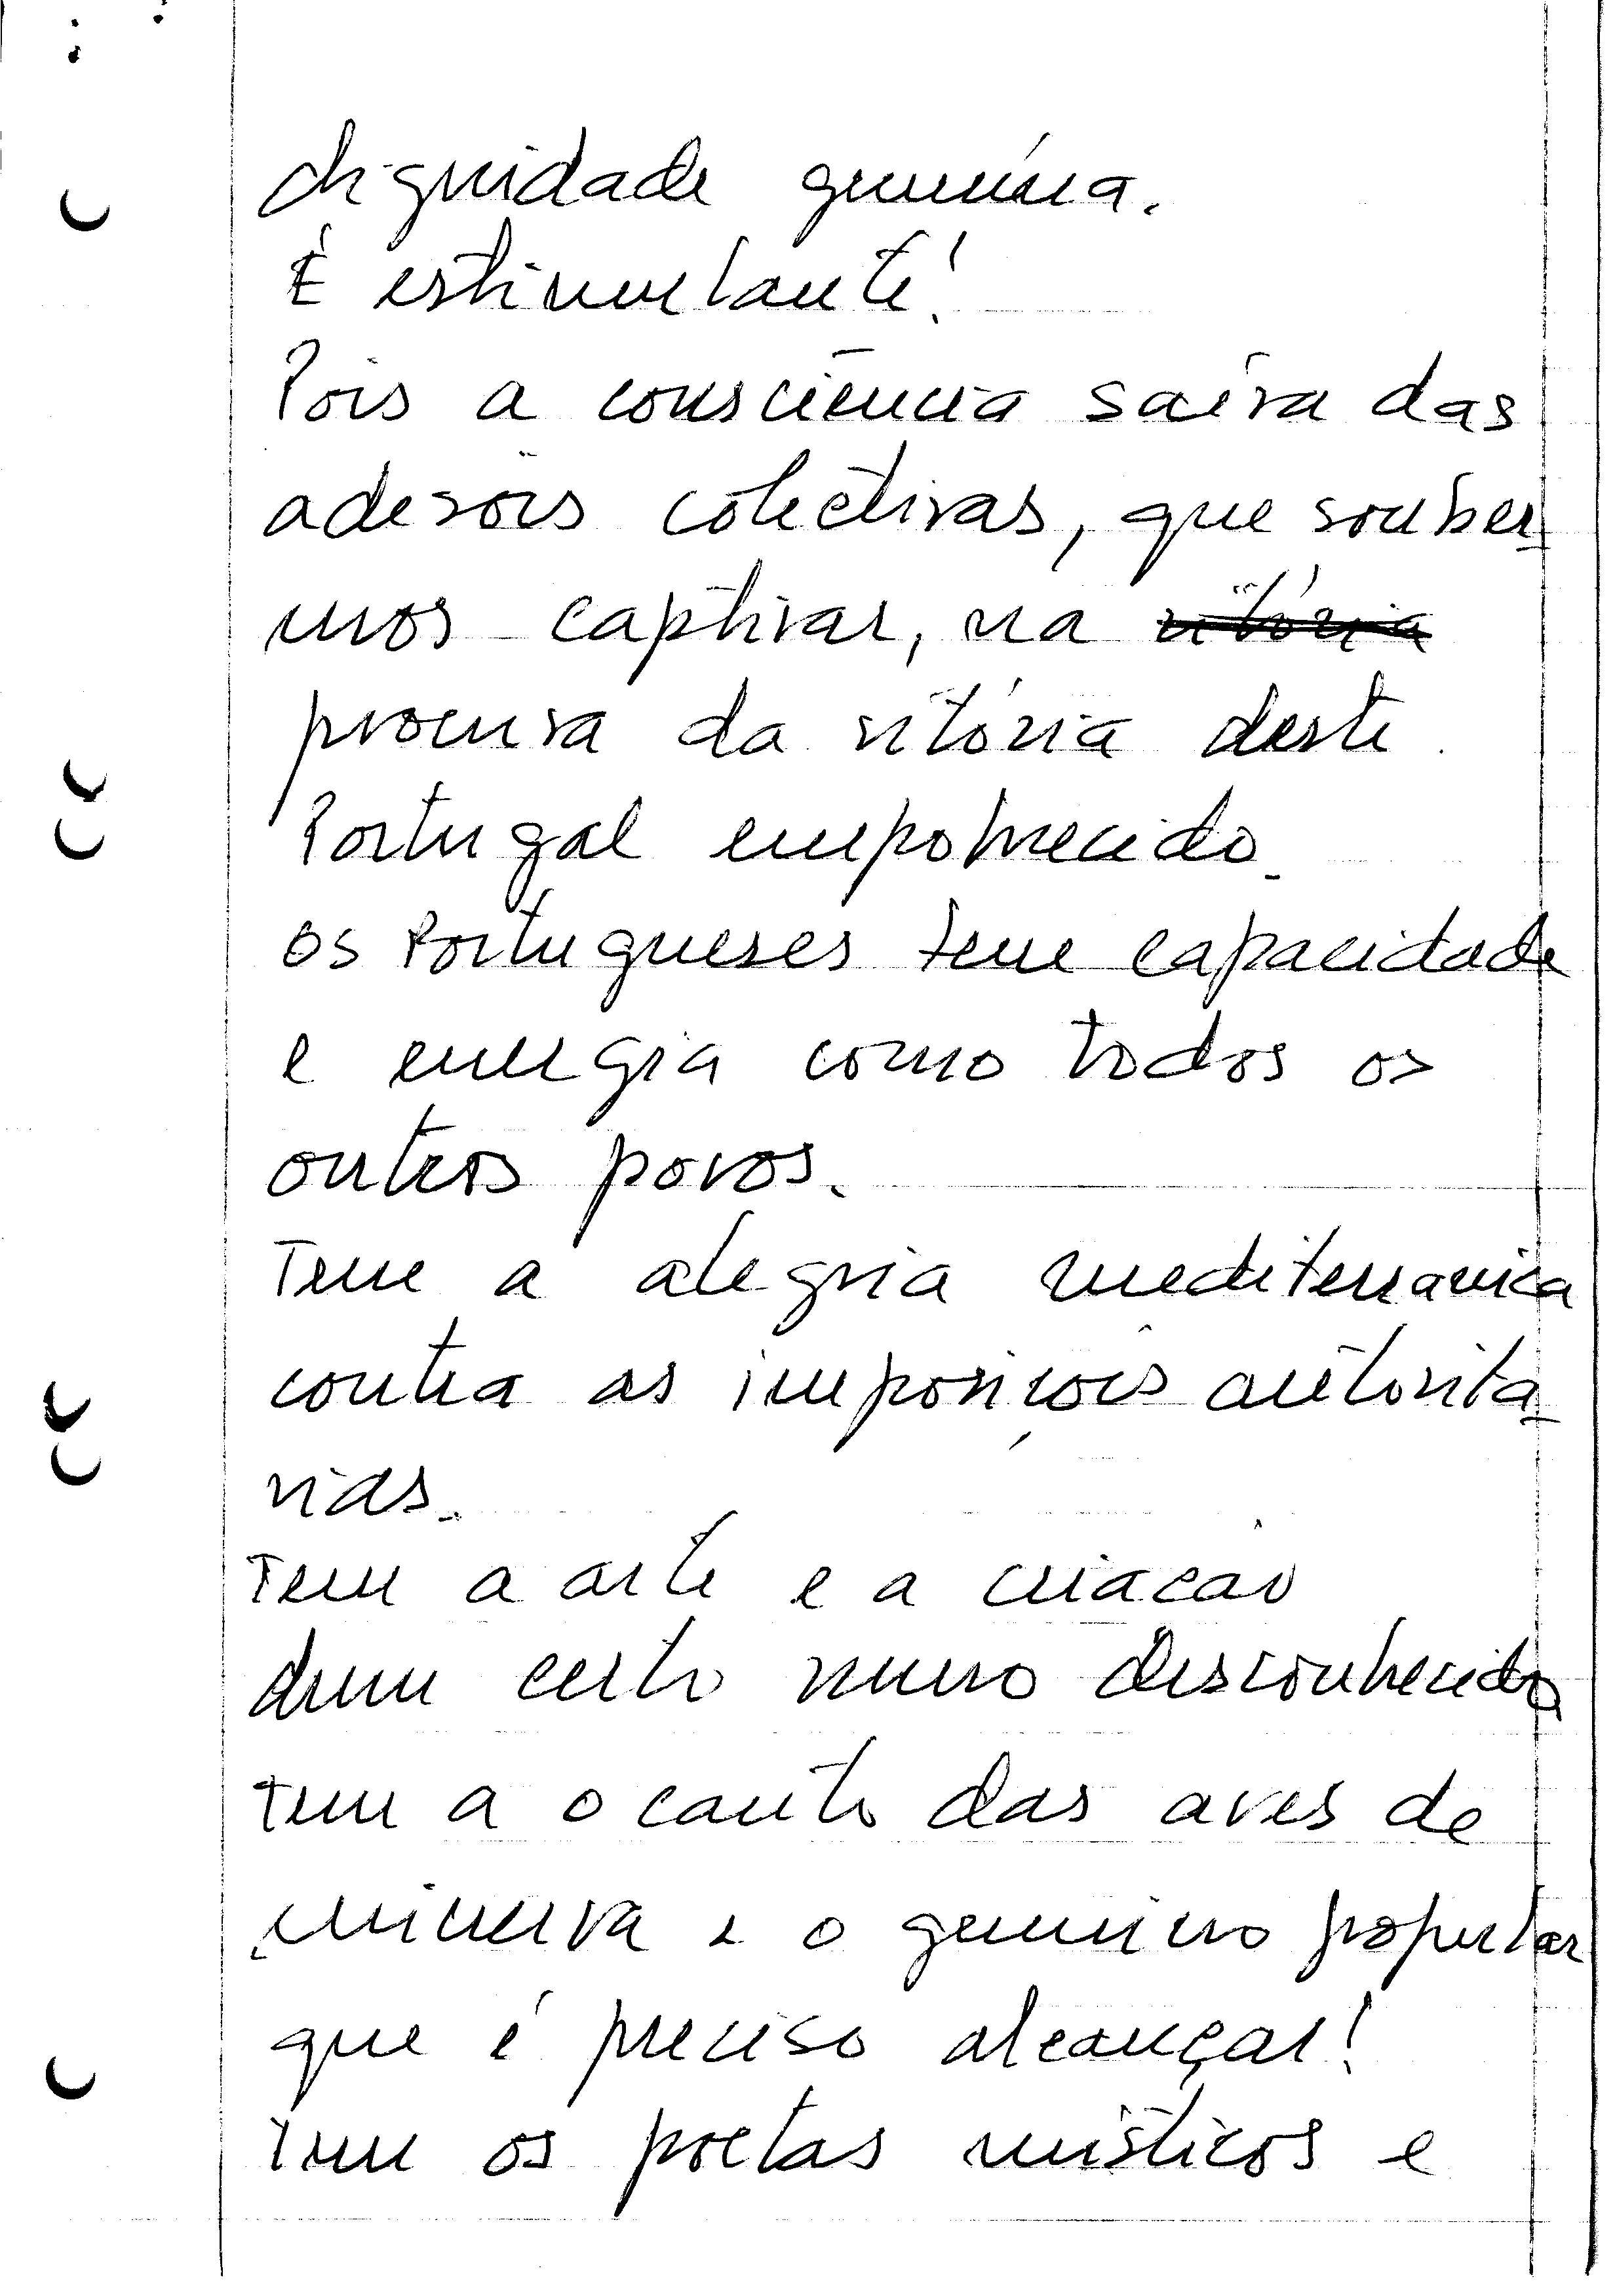 dignidade genuína.
É estimulante!
Pois a consciência saíra das
adesões colectivas, que souber-
mos captivar, na vitória
procura da vitória deste
Portugal empobrecido.
Os Portugueses tem capacidade
e energia como todos os
outros povos.
Tem a alegria mediterranica
contra as imposições autorita-
rias.
Tem a arte e a criacão
dum certo desconhecido
tem a o canto das aves de
minerva e o genuino popular
que é preciso alcançar!
Tem os poetas místicos e